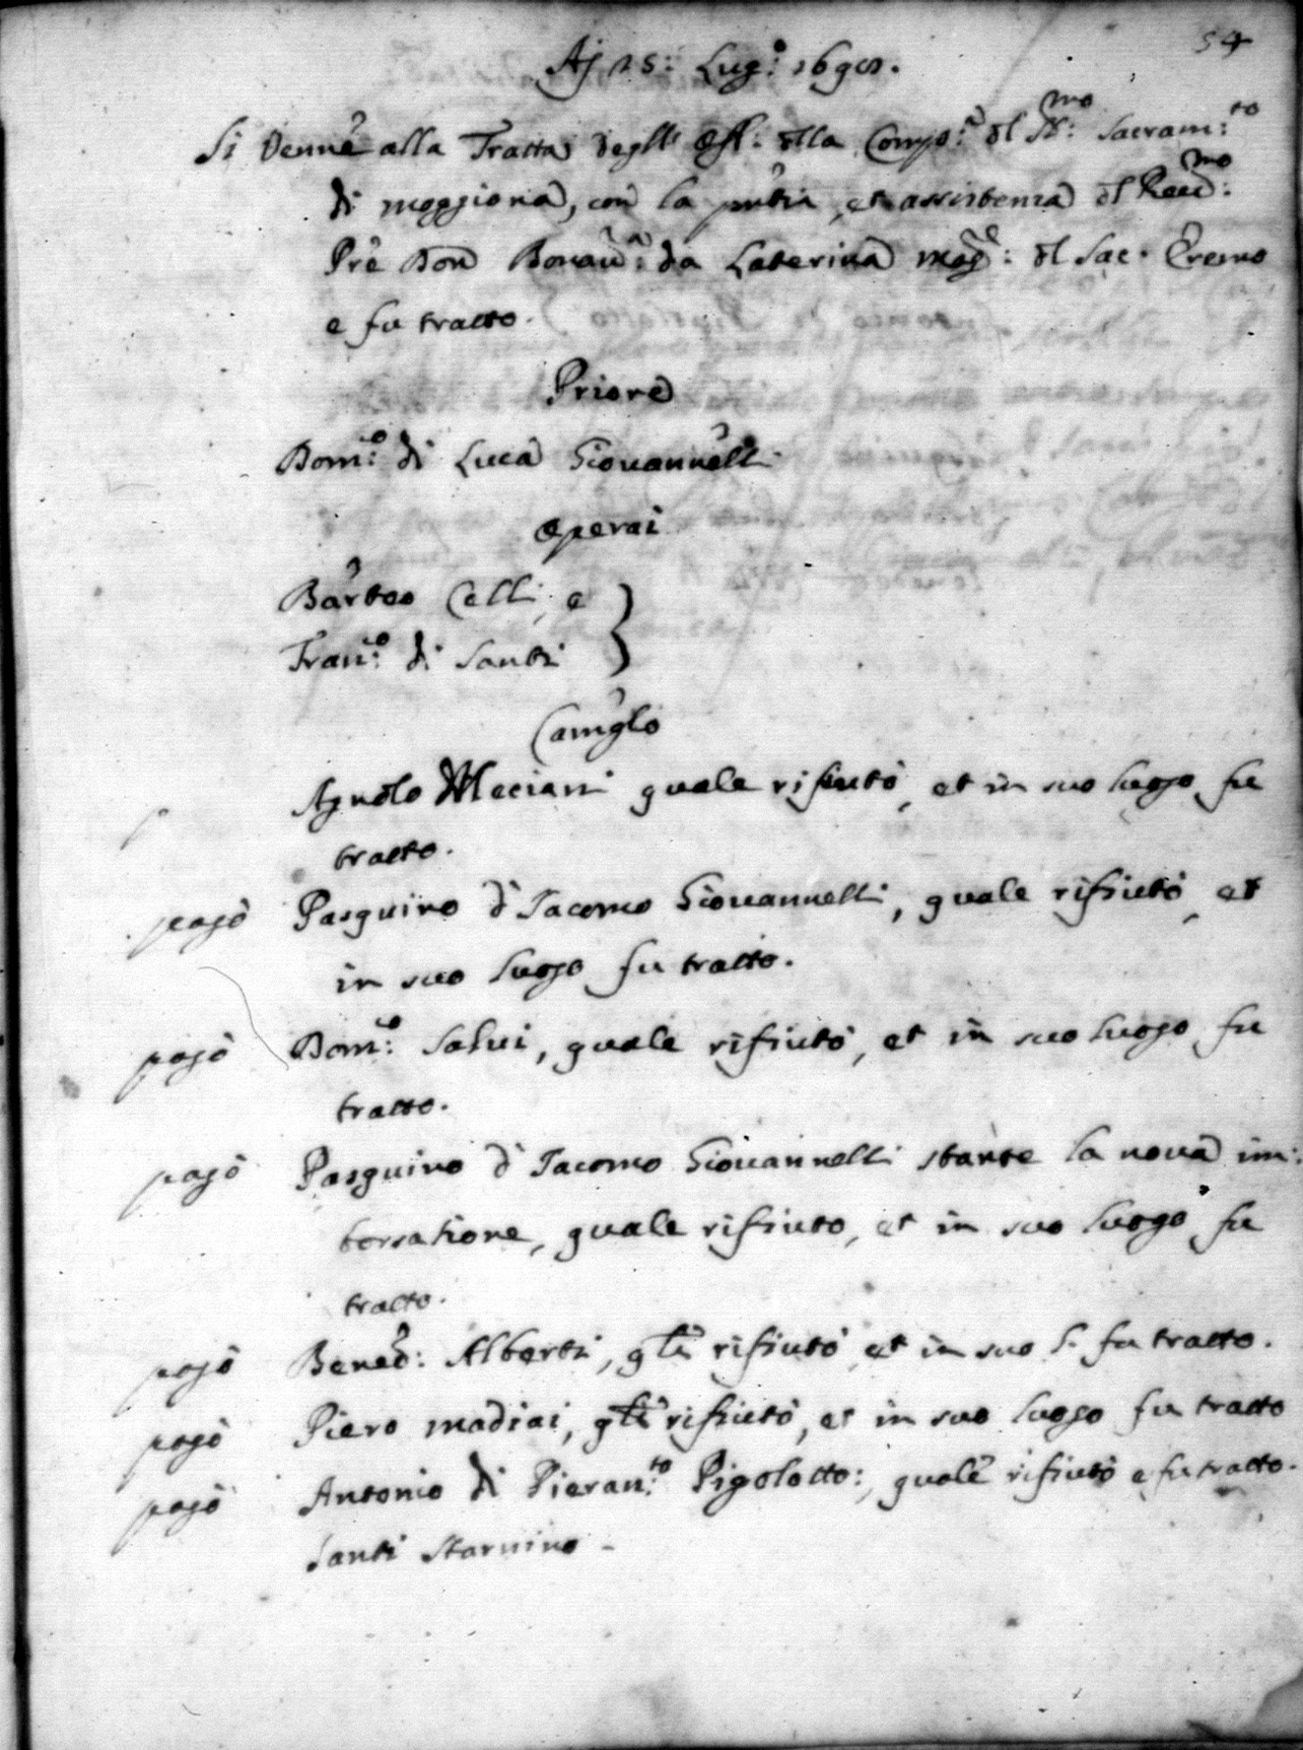 54
Aj 15: Lug:o 1690.
Si Venne alla Tratta degli Off: dlla Comp:a dl SS:mo Sacram:to
di moggiona, con la pñtia, et assistenza dl Reud:mo
Pre Don Bonau:a da Laterina Mag:e dl Sac. Eremo
e fu tratto.
Priore
Dom:co di Luca Giouannelli
Operai
Barteo Celli, e
Fran:co di Santi
Camglo
Agnolo Meciani quale rifiutò, et in suo luogo fu
tratto.
pagò Pasquino d Iacomo Giouannelli, quale rifiutò, et
in suo luogo fu tratto.
pagò Dom:co Salui, quale rifiutò, et in suo luogo fu
tratto.
pagò Pasquino d Iacomo Giouannelli stante la noua im:
borsatione, quale rifiuto, et in suo luogo fu
tratto.
pagò Bened: Alberti, qle rifiutò et in suo l. fu tratto.
pagò Piero madiai, qle rifiutò, et in suo luogo fu tratto
pagò Antonio di Pieran:to Pigolotto:, quale rifiutò e fu tratto.
Santi Starnino -